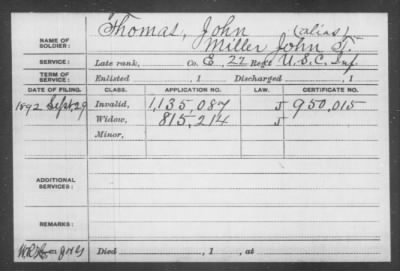 NAME OF SOLDIER: Thomas, John (alias)
Miller John T.
SERVICE: Late rank, Co. E, 22 Reg't U.S.C. Inf.
TERM OF SERVICE: Enlisted , 1 Discharged , 1
DATE OF FILING. CLASS. APPLICATION NO. LAW. CERTIFICATE NO.
1892 Sept. 29 Invalid, 1,135,087 J 950,015
Widow, 815,214 J
Minor,
ADDITIONAL SERVICES:
REMARKS:
Died , 1 , at